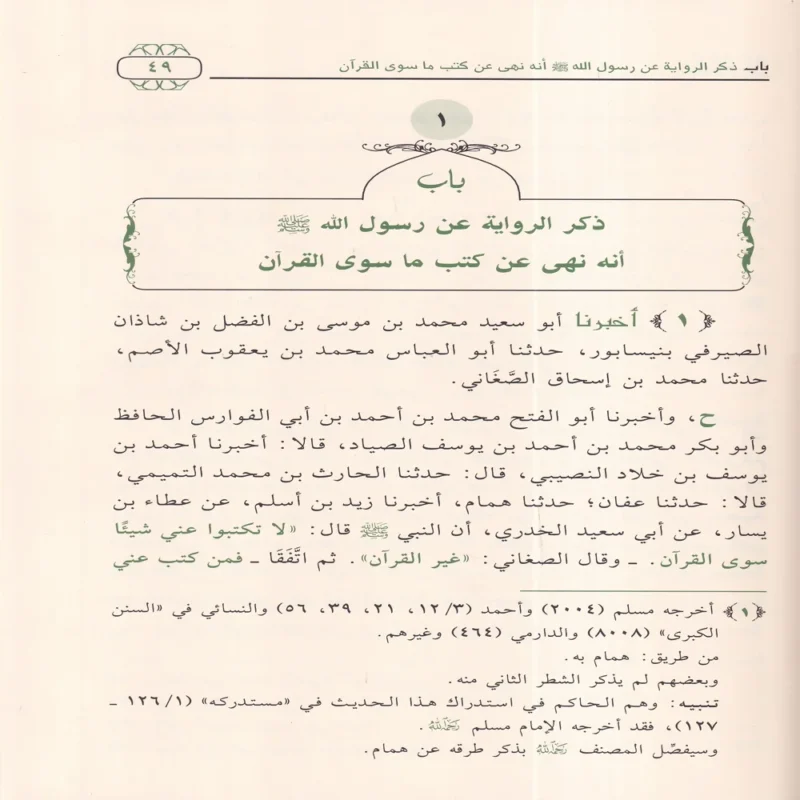 باب ذكر الرواية عن رسول الله ﷺ أنه نهى عن كتب ما سوى القرآن
٤٩
١
باب
ذكر الرواية عن رسول الله ﷺ
أنه نهى عن كتب ما سوى القرآن
﴿١﴾ أخبرنا أبو سعيد محمد بن موسى بن الفضل بن شاذان
الصيرفي بنيسابور، حدثنا أبو العباس محمد بن يعقوب الأصم،
حدثنا محمد بن إسحاق الصَّغَاني.
ح، وأخبرنا أبو الفتح محمد بن أحمد بن أبي الفوارس الحافظ
وأبو بكر محمد بن أحمد بن يوسف الصياد، قالا: أخبرنا أحمد بن
يوسف بن خلاد النصيبي، قال: حدثنا الحارث بن محمد التميمي،
قالا: حدثنا عفان؛ حدثنا همام، أخبرنا زيد بن أسلم، عن عطاء بن
يسار، عن أبي سعيد الخدري، أن النبي ﷺ قال: «لا تكتبوا عني شيئًا
سوى القرآن. ـ وقال الصغاني: «غير القرآن». ثم اتَّفَقَا ـ فمن كتب عني
﴿١﴾ أخرجه مسلم (٢٠٠٤) وأحمد (١٢/٣، ٢١، ٣٩، ٥٦) والنسائي في «السنن
الكبرى» (٨٠٠٨) والدارمي (٤٦٤) وغيرهم.
من طريق: همام به.
وبعضهم لم يذكر الشطر الثاني منه.
تنبيه: وهم الحاكم في استدراك هذا الحديث في «مستدركه» (١٢٦/١ ـ
١٢٧)، فقد أخرجه الإمام مسلم رحمه الله.
وسيفصّل المصنف رحمه الله بذكر طرقه عن همام.